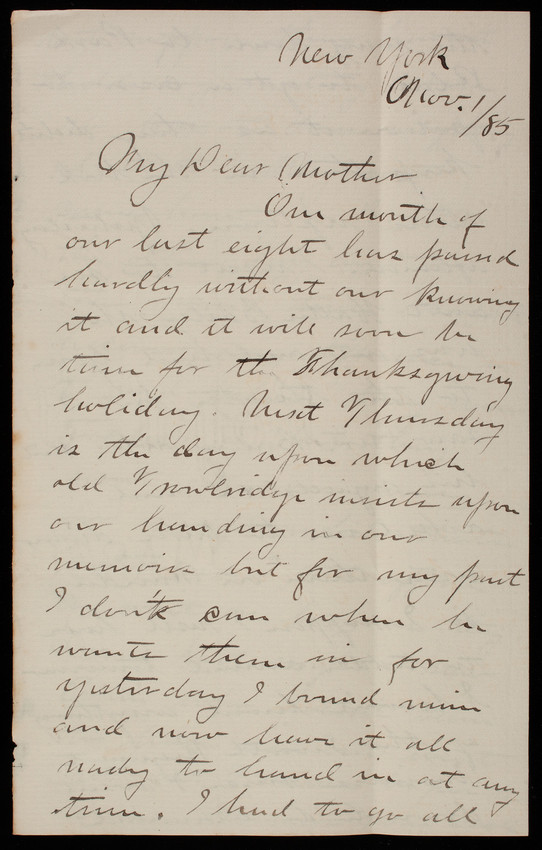 New York
Nov. 1/85
My Dear Mother
One month of
our last eight has passed
hardly without our knowing
it and it will soon be
time for the Thanksgiving
holiday. Next Thursday
is the day upon which
old Trowbridge insists upon
our handing in our
memoirs but for my part
I don't care when he
wants them in for
yesterday I bound mine
and now have it all
ready to hand in at any
time. I had to go all